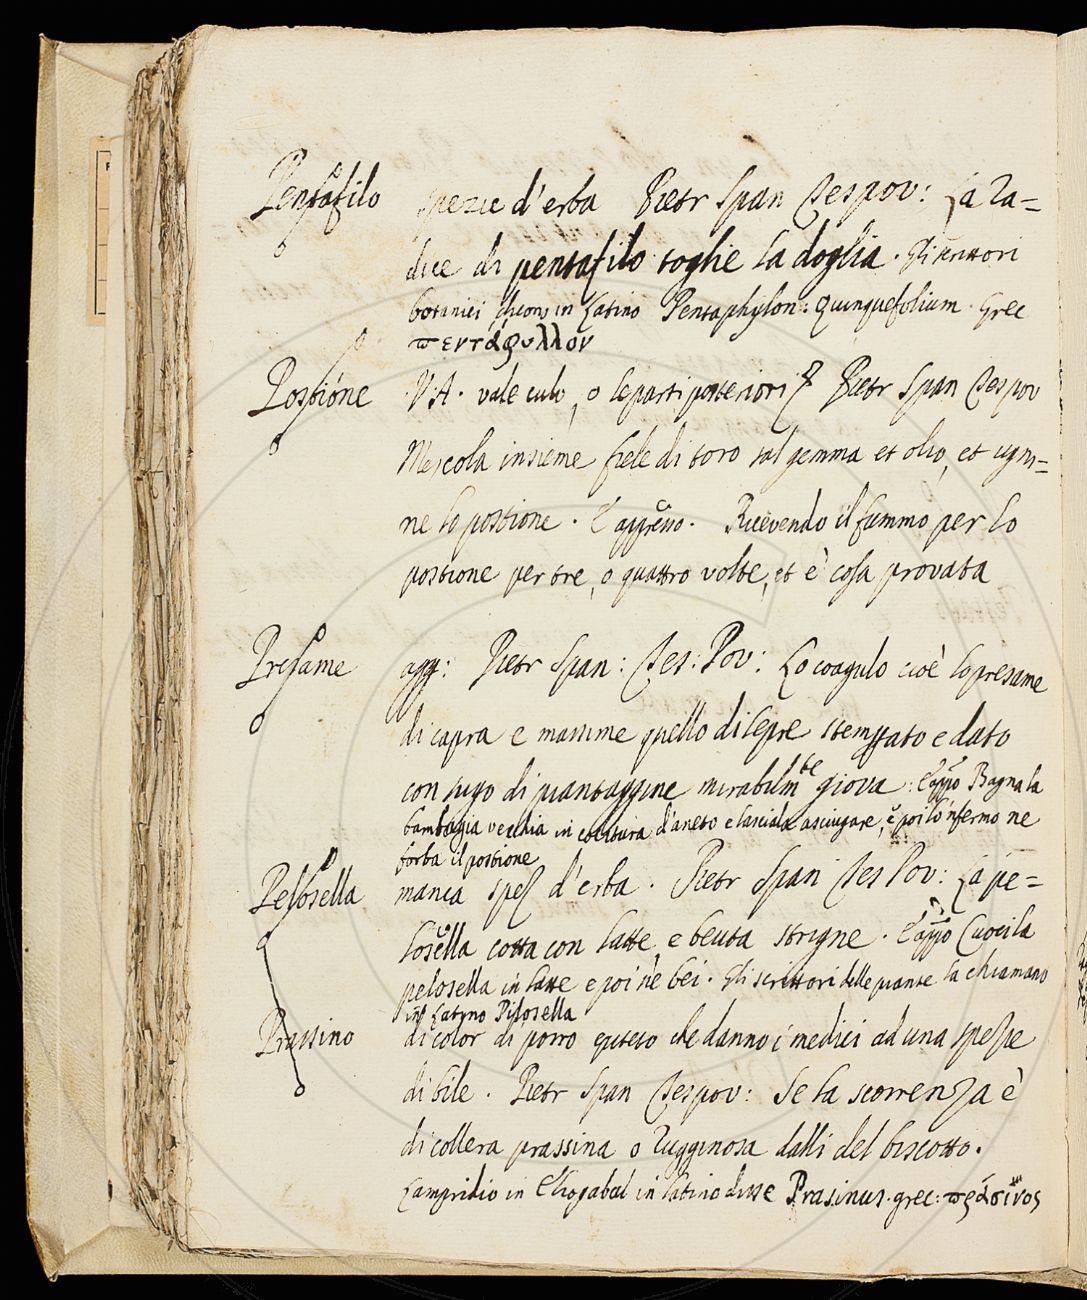 Pentafilo spezie d'erba Pietr Span Tes pov: La ra=
dice di pentafilo toglie la doglia. Gli scrittori
botanici dicono in Latino Pentaphylon: Quinquefolium. Grec
πεντάφυλλον
Postione V.A. vale culo, o le parti posteriori Pietr Span Tes pov
Mescola insieme fiele di toro sal gemma et olio, et ugni=
ne lo postione. E appresso. Ricevendo il fummo per lo
postione per tre, o quattro volte, et è cosa provata
Presame agg: Pietr Span: Tes: Pov: Lo coagulo cioè lo presame
di capra e massime quello di lepre stemprato e dato
con sugo di piantaggine mirabilmte giova: E appo Bagna la
bambagia vecchia in cocitura d'aneto e lasciala asciugare, e poi lo 'nfermo ne
forba il postione
Pelosella manca spe d'erba. Pietr Span Tes Pov: La pe=
losella cotta con latte e beuta strigne. E appo Cuoci la
pelosella in latte e poi ne bei. Gli scrittori delle piante la chiamano
in Latino Pilosella
Prassino di color di porro epiteto che danno i medici ad una spezie
di bile. Pietr Span Tes pov: Se la scorrenza è
di collera prassina o rugginosa dalli del biscotto.
Lampridio in Eliogabal in latino disse Prasinus. grec: πράσινος